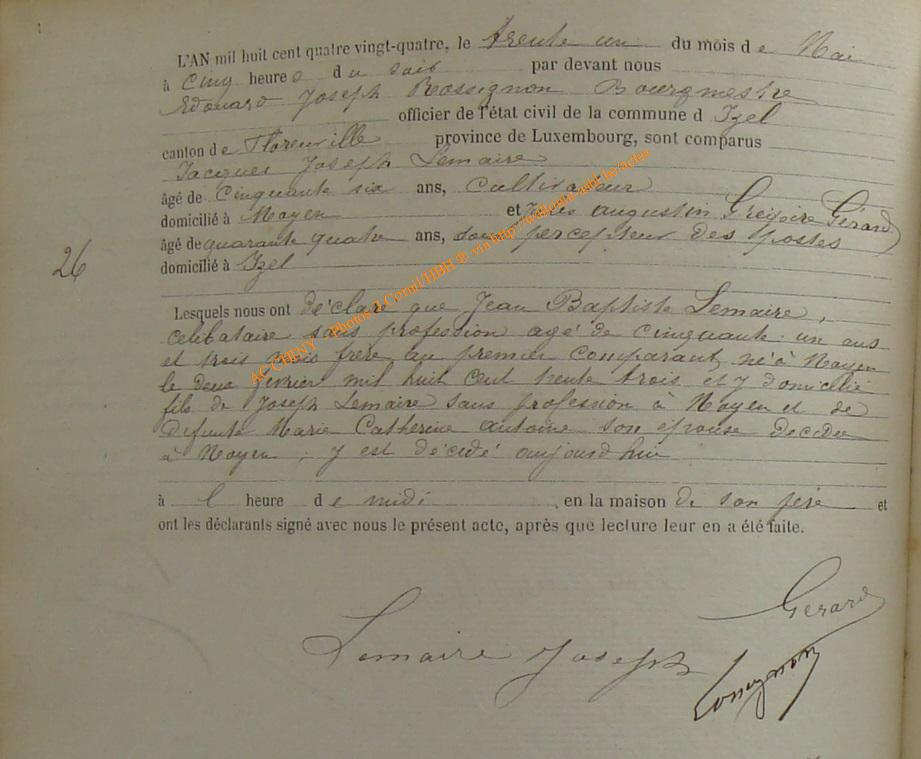 L'AN mil huit cent quatre vingt-quatre, le trente un du mois de Mai
à Cinq heures du soir par devant nous
Edouard Joseph Rossignon Bourgmestre
officier de l'état civil de la commune d Izel
canton de Florenville province de Luxembourg, sont comparus
Jacques Joseph Lemaire
âgé de Cinquante six ans, Cultivateur
domicilié à Moyen et Jules Augustin Grégoire Gérard
âgé de quarante quatre ans, sous percepteur des postes
domicilié à Izel
26
Lesquels nous ont déclaré que Jean Baptiste Lemaire,
célibataire sans profession agé de cinquante un ans
et trois mois frère au premier comparant, né à Moyen
le deux février mil huit cent trente trois et y domicilié
fils de Joseph Lemaire sans profession à Moyen et de
défunte Marie Catherine Antoine son épouse décédée
à Moyen, y est décédé aujourd'hui
à l heure de midi, en la maison de son père et
ont les déclarants signé avec nous le présent acte, après que lecture leur en a été faite.
Gerard
Lemaire Joseph
Rossignon
ACCHINY - Photos J. Cornil/HBH ® via http://wallonia-aud-les-actes